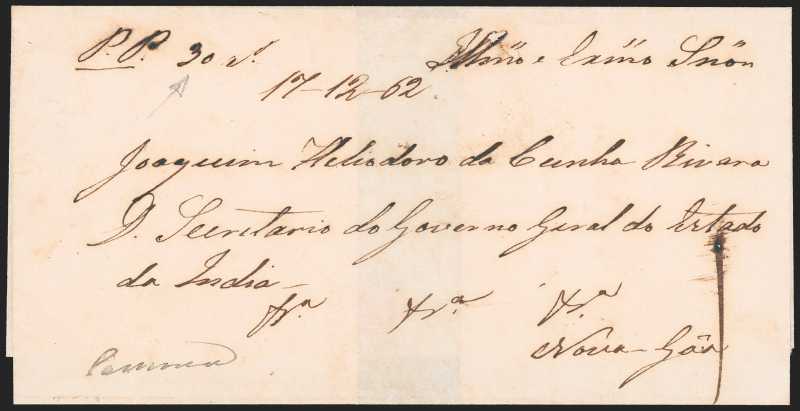 P.P. 30 rs. Illmo e Exmo Snor
17-12-62
Joaquim Heliodoro da Cunha Rivara
D. Secretario do Governo Geral do Estado
da India
&ra &ra &ra
Nova-Gôa